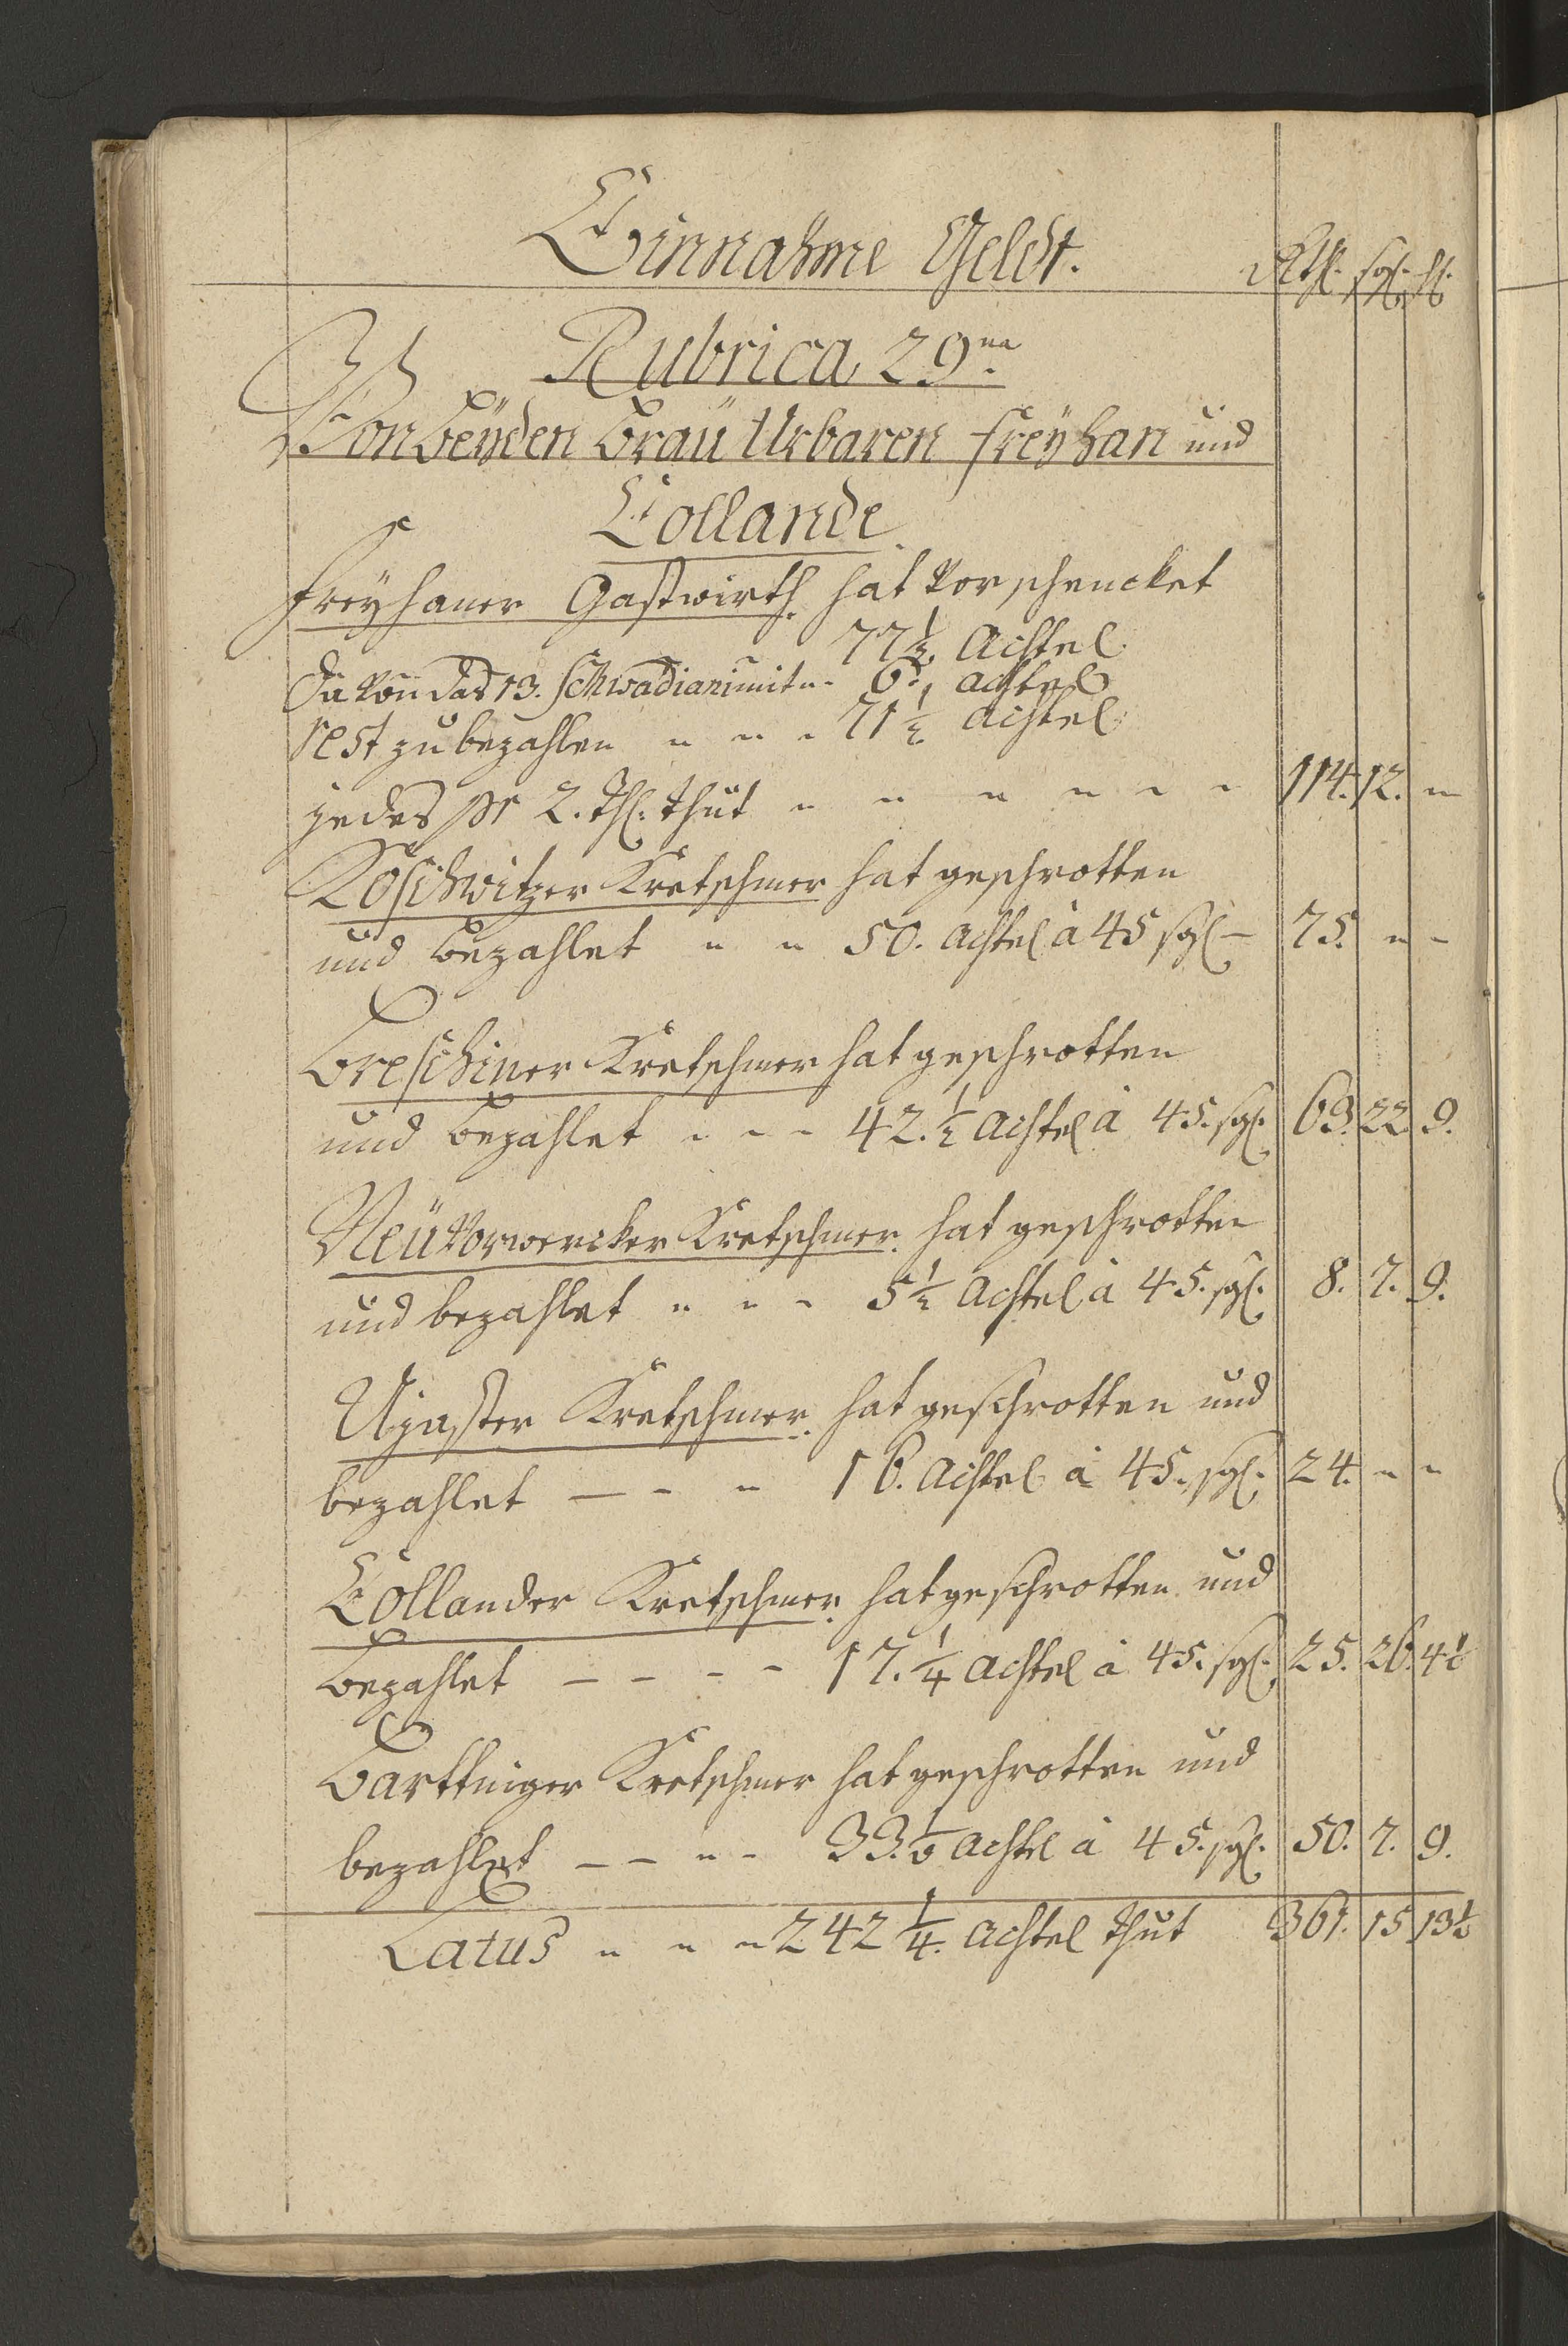 Einnahme Geldt. Rthl. sgl. hl.
Rubrica 29na.
Von beÿden Braü Urbaren Freÿhan und
Collande
Freÿhaner Gastwirth. hat verschencket
77 1/2 Achtel
da von das 13. Schwadianimit „ - 6. Achtel
rest zu bezahlen „ „ „ 71 1/2 Achtel
jedes pr 2. Thl. thut „ „ „ „ „ „ 114. 12. „
Koschwitzer Kretschmer hat geschrotten
und bezahlet „ „ 50. Achtel à 45 sgl - 75. „ -
Breschiner Kretschmer hat geschrotten
und bezahlet „ - - 42. 1/2 Achtel à 45. sgl. 63. 22 9.
Neü Vorwercker Kretschmer. hat geschrotten
und bezahlet „ „ - 5 1/2 Achtel à 45. sgl. 8. 7. 9.
Ujaster Kretschmer. hat geschrotten und
bezahlet — - „ 16. Achtel à 45. sgl. 24. „ „
Collander Kretschmer. hat geschrotten und
bezahlet - - - - 17. 1/4 Achtel à 45. sgl. 25. 26. 4 1/2
Barttniger Kretschmer hat geschrotten und
bezahlet - - „ - 33. 1/2 Achtel à 45. sgl. 50. 7. 9.
Latus „ „ „ 242 1/4. Achtel thut 361. 15 13 1/2